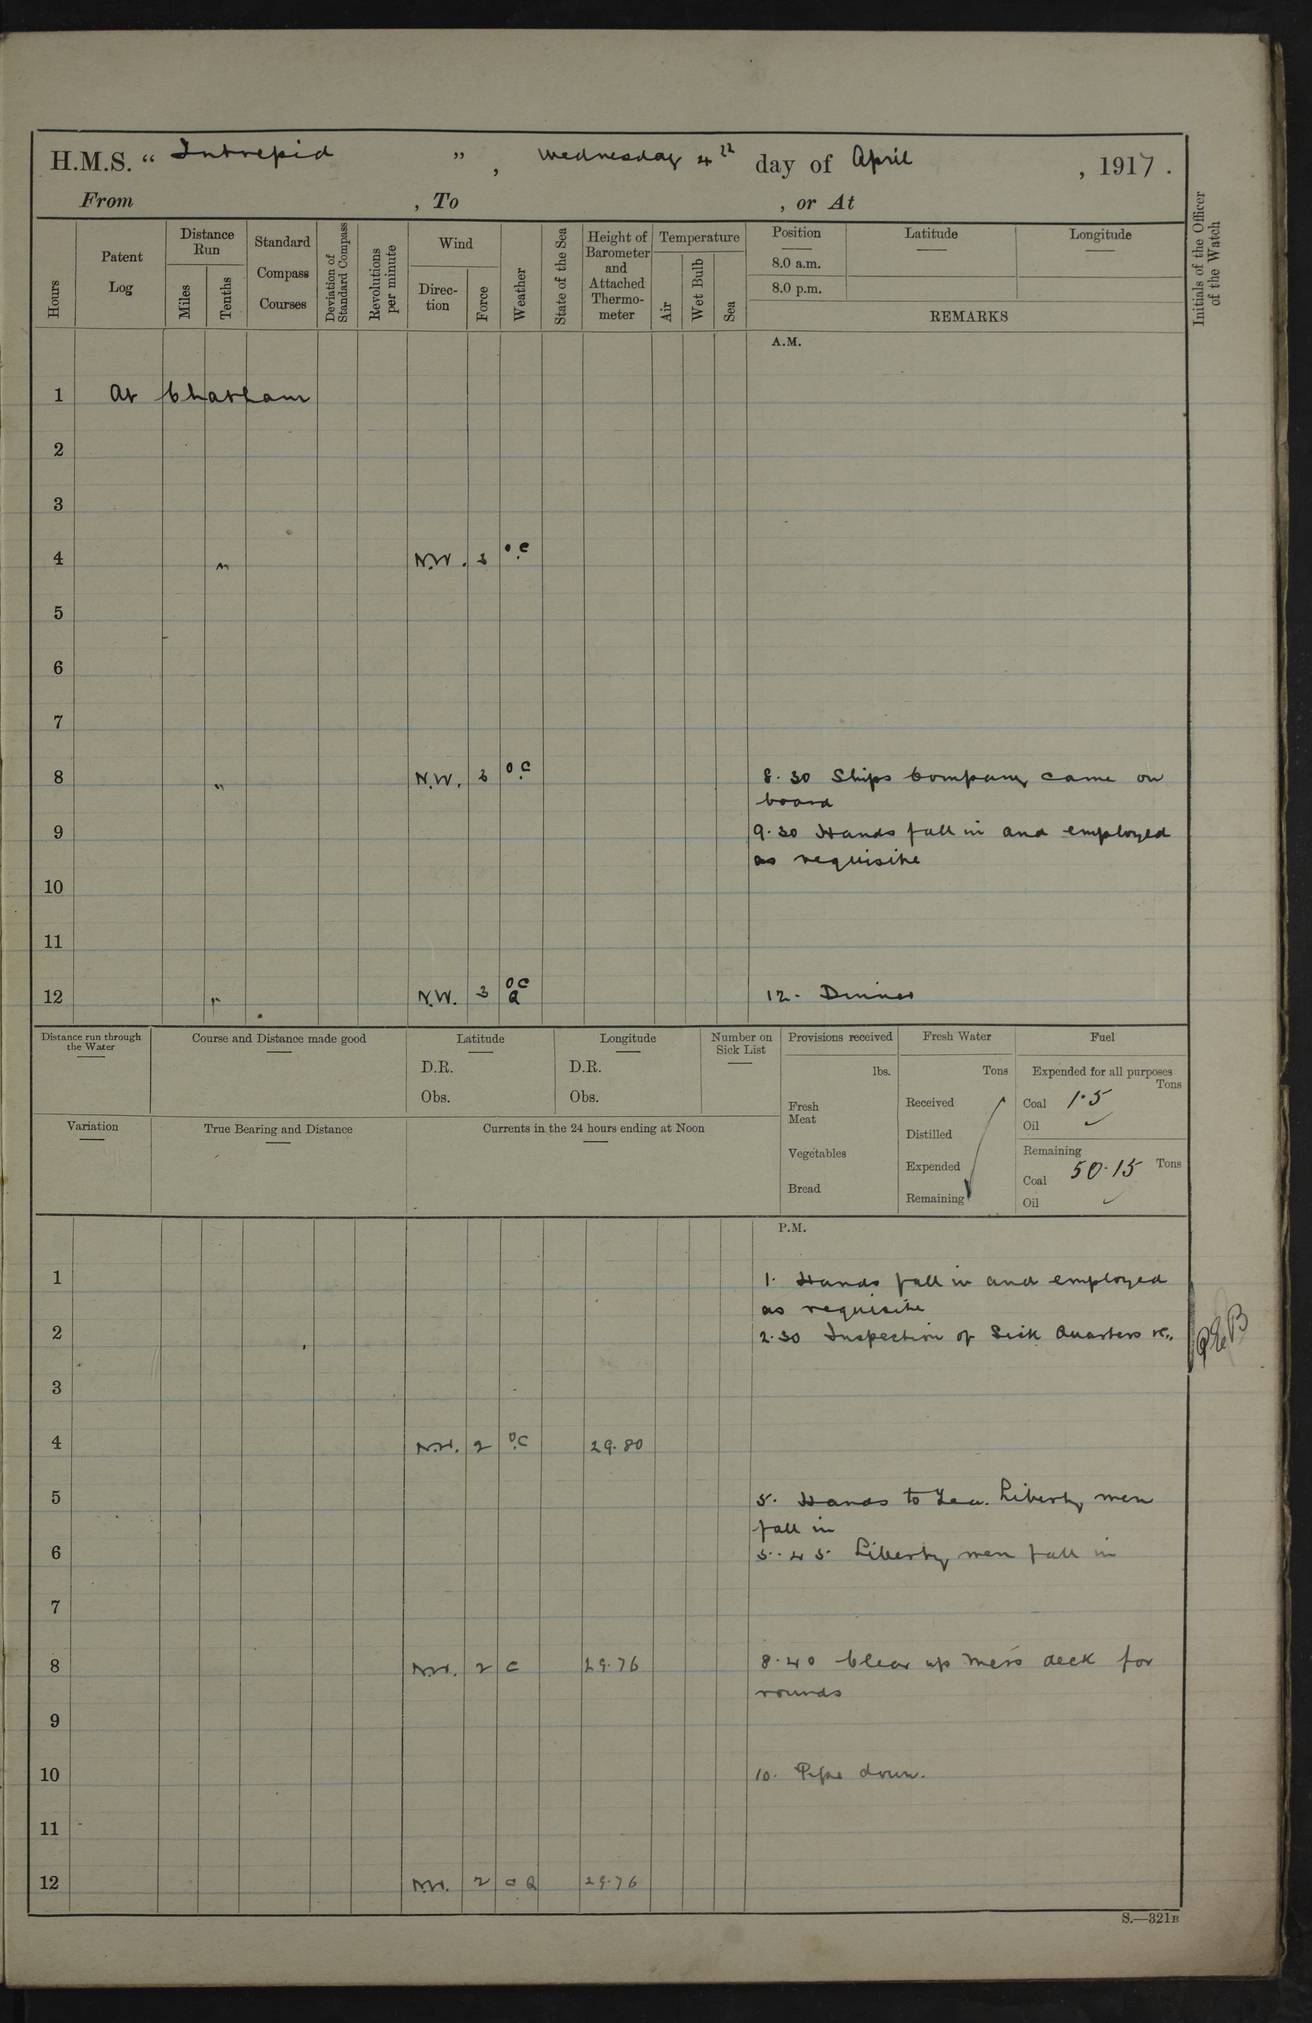 H.M.S. “ Intrepid ” , Wednesday 4th day of April , 1917 .
From , To , or At
Hours
Patent Log
Distance Run
Miles
Tenths
Standard Compass Courses
Deviation of Standard Compass
Revolutions per minute
Wind
Direc-tion
Force
Weather
State of the Sea
Height of Barometer and Attached Thermo-meter
Temperature
Air
Wet Bulb
Sea
Position
8.0 a.m.
8.0 p.m.
Latitude
Longitude
REMARKS
Initials of the Officer of the Watch
A.M.
1 At Chatham
2
3
4 " N.W. 3 o.c
5
6
7
8 " N.W. 3 o.c 8.30 Ships Company came on
board
9 9.30 Hands fall in and employed
as requisite
10
11
12 " N.W. 3 o c Q 12. Dinner
Distance run through the Water
Course and Distance made good
Latitude
D.R.
Obs.
Longitude
D.R.
Obs.
Number on Sick List
Provisions received
lbs.
Fresh Meat
Vegetables
Bread
Fresh Water
Tons
Received
Distilled
Expended
Remaining
Fuel
Expended for all purposes
Tons
Coal 1.5
Oil ✓
Remaining
Coal 50.15 Tons
Oil ✓
Variation
True Bearing and Distance
Currents in the 24 hours ending at Noon
P.M.
1 1. Hands fall in and employed
as requisite
2 2.30 Inspection of Sick Quarters &c.
3
4 N.W. 2 o.c 29.80
5 5. Hands to Tea. Liberty men
fall in
6 5.45 Liberty men fall in
7
8 N.W. 2 c 29.76 8.40 Clear up mess deck for
rounds
9
10 10. Pipe down.
11
12 N.W. 2 c Q 29.76
S.—321B